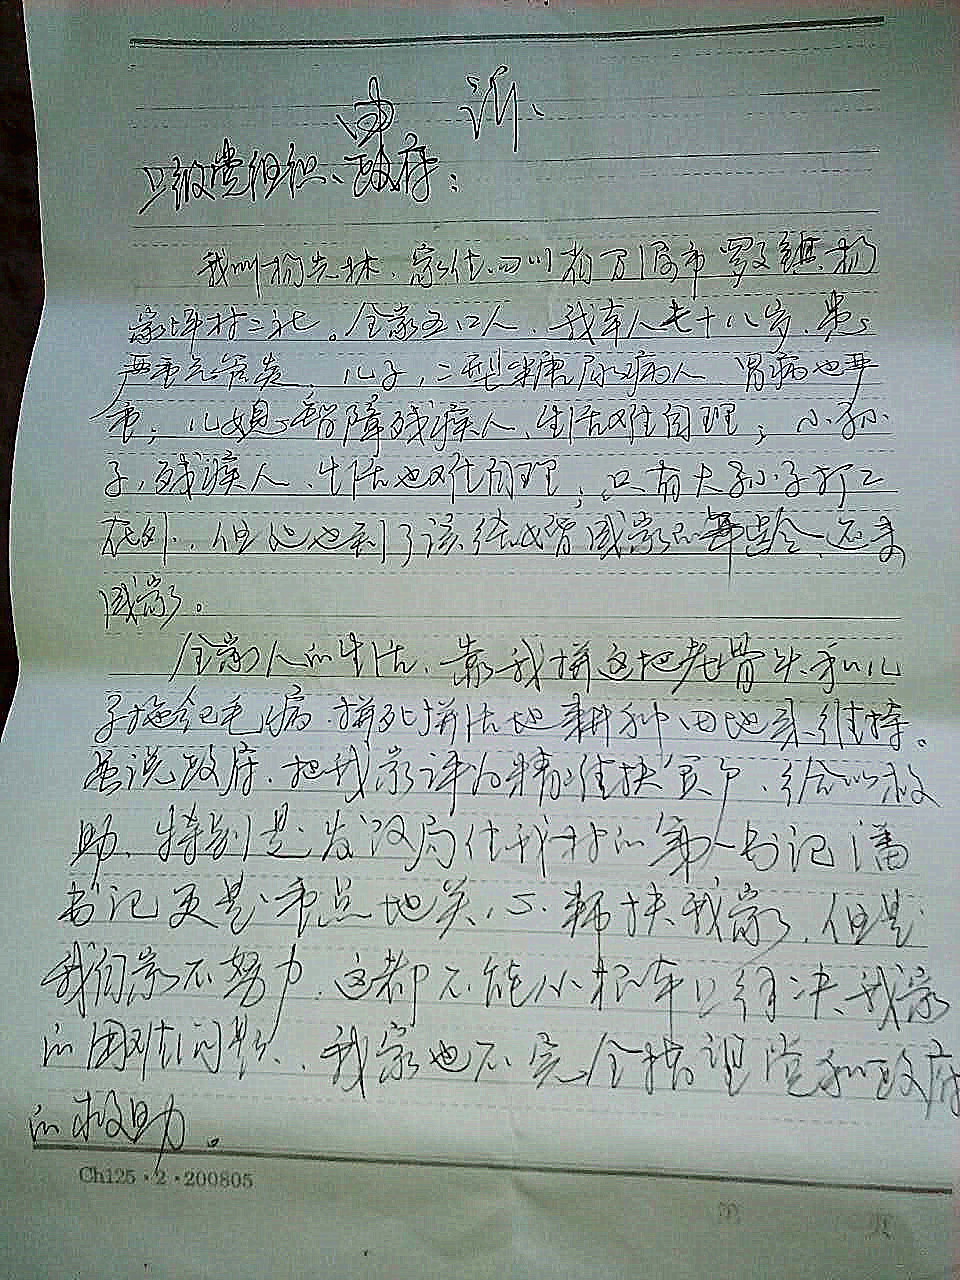 申 诉
各级党组织、政府：
我叫杨先林，家住四川省万源市罗文镇杨
家坪村二社。全家五口人，我本人七十八岁，患
严重气管炎，儿子，二型糖尿病人，胃病也严
重；儿媳智障残疾人，生活难自理；小孙
子，残疾人，生活也难自理；只有大孙子打工
在外，但他也到了该结婚成家的年龄，还未
成家。
全家人的生活，靠我拼这把老骨头和儿
子拖起毛病，拼死拼活地耕种田地来维持。
虽说政府，把我家评为精准扶贫户，给以救
助，特别是发改局住我村的第一书记潘
书记更是重点地关心帮扶我家，但是
我们家不努力，这都不能从根本上解决我家
的困难问题，我家也不完全指望党和政府
的救助。
Ch125·2·200805
第 页